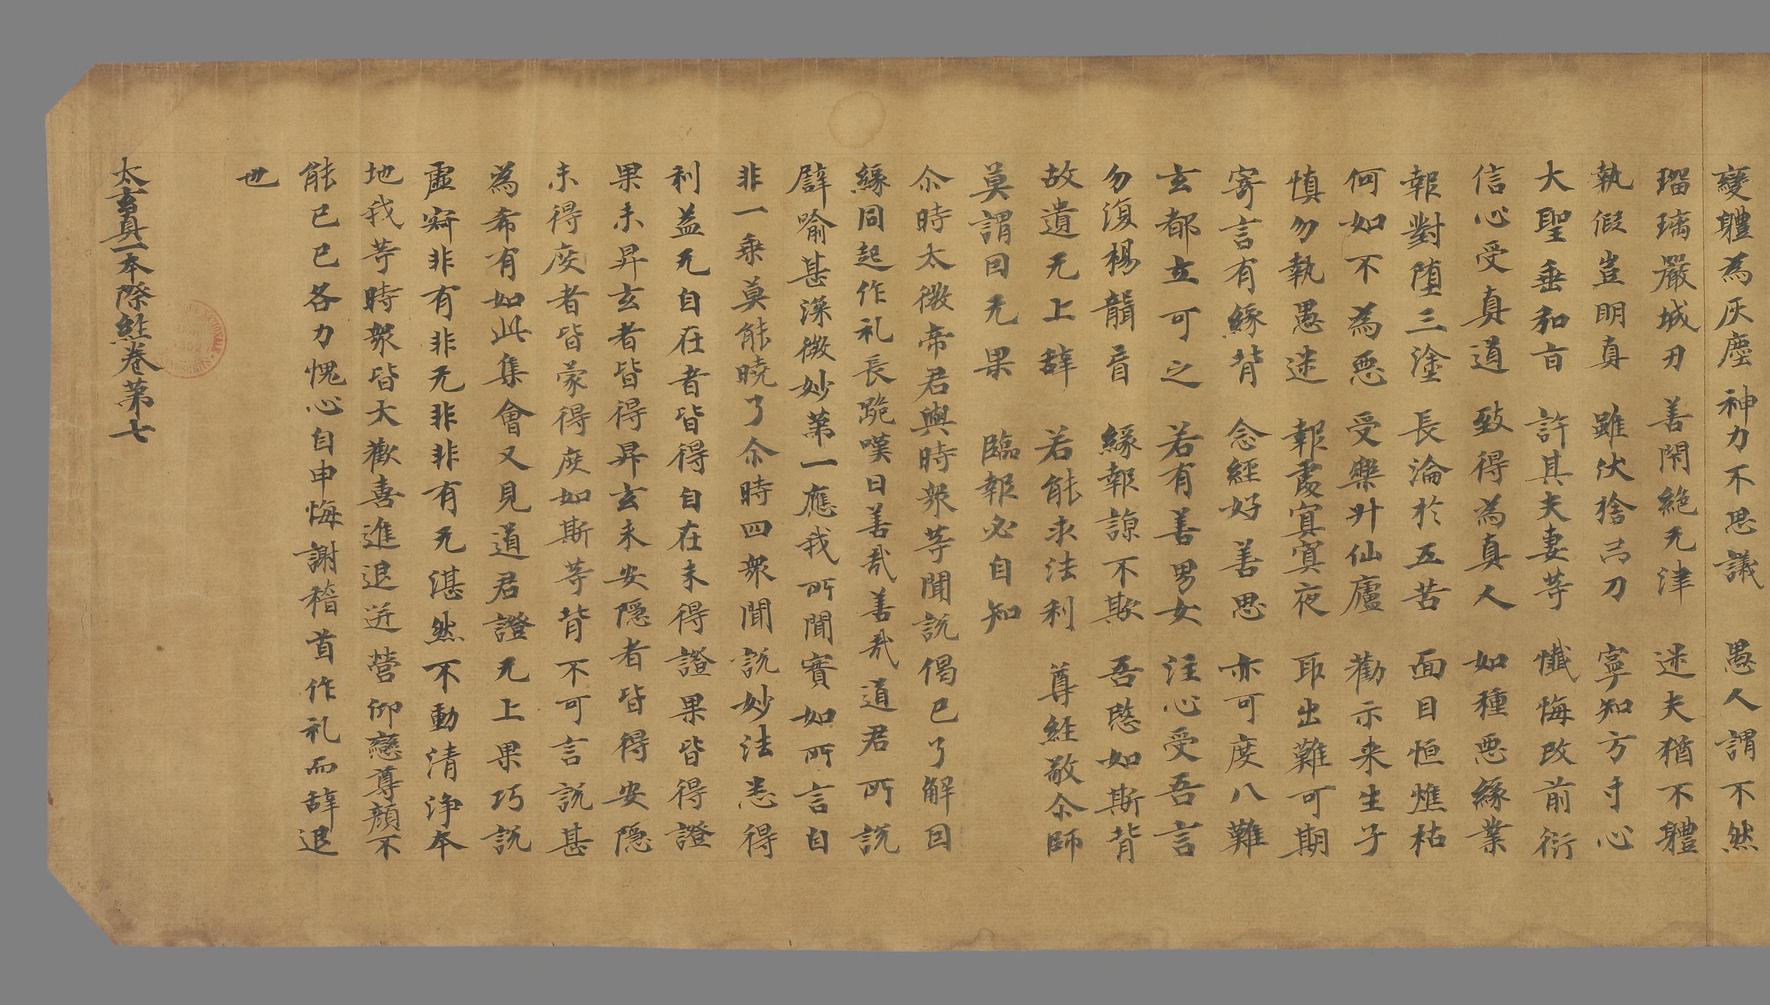 變體為灰塵 神力不思議 愚人謂不然
瑠璃嚴城刃 善閇絶无津 迷夫猶不軆
執假豈明真 雖伏捨刀 寧知方寸心
大聖垂和旨 許其夫妻等 懺悔改前衍
信心受真道 致得為真人 如種惡緣業
報對墮三塗 長淪於五苦 面目恒燋枯
何如不為惡 受樂升仙廬 勸示来生子
慎勿執愚迷 報處冥冥夜 耶出難可期
寄言有緣背 念經好善思 亦可度八難
玄都立可之 若有善男女 注心受吾言
勿復楊龍盲 緣報諒不欺 吾愍如斯背
故遺无上辞 若能求法利 尊經敬尒師
莫謂因无果 臨報必自知
尒時太微帝君與時衆等聞說偈已了解因
緣同起作礼長跪嘆曰善哉善哉道君所說
譬喻甚深微妙第一應我所聞實如所言自
非一乘莫能曉了尒時四衆聞說妙法悉得
利益无自在者皆得自在未得證果皆得證
果未昇玄者皆得昇玄未安隱者皆得安隱
未得度者皆蒙得度如斯等背不可言說甚
為希有如此集會又見道君證无上果巧說
虛寂非有非无非非有无湛然不動清淨本
地我等時衆皆大歡喜進退迸營仰戀尊顏不
能已已各力愧心自申悔謝稽首作礼而辞退
也
太玄真一本際經卷第七